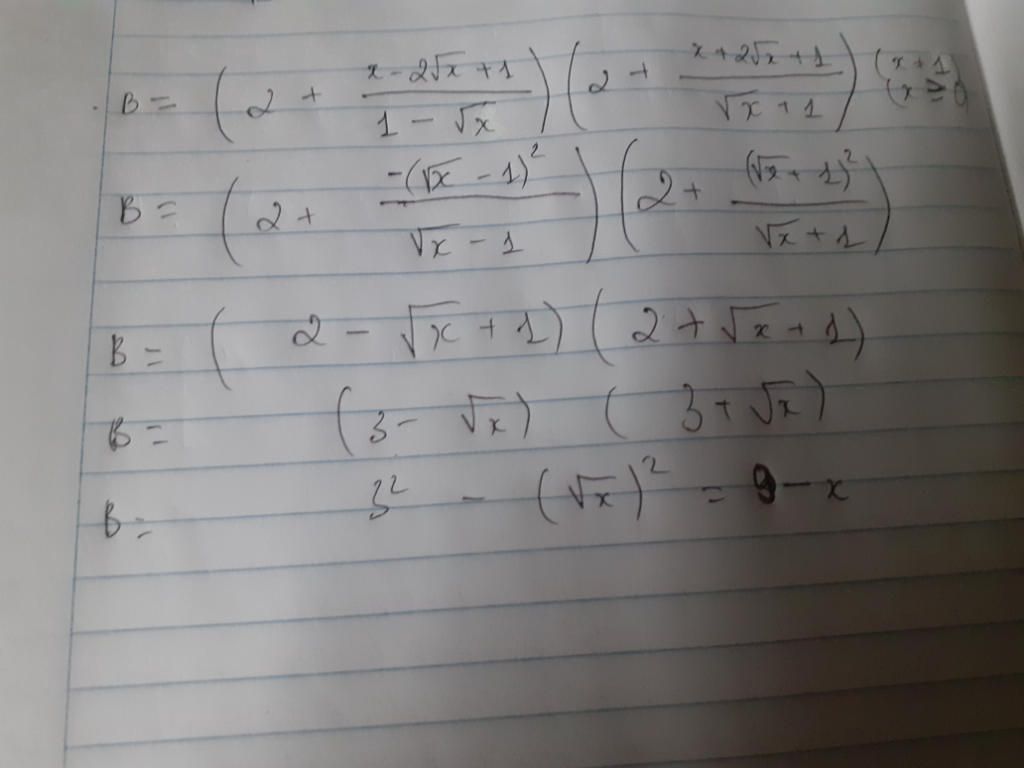 B = (2 + \frac{x - 2\sqrt{x} + 1}{1 - \sqrt{x}}) (2 + \frac{x + 2\sqrt{x} + 1}{\sqrt{x} + 1}) (x ≠ 1) (x ≥ 0)
B = (2 + \frac{-(\sqrt{x} - 1)^2}{\sqrt{x} - 1}) (2 + \frac{(\sqrt{x} + 1)^2}{\sqrt{x} + 1})
B = (2 - \sqrt{x} + 1) (2 + \sqrt{x} + 1)
B = (3 - \sqrt{x}) (3 + \sqrt{x})
B = 3^2 - (\sqrt{x})^2 = 9 - x